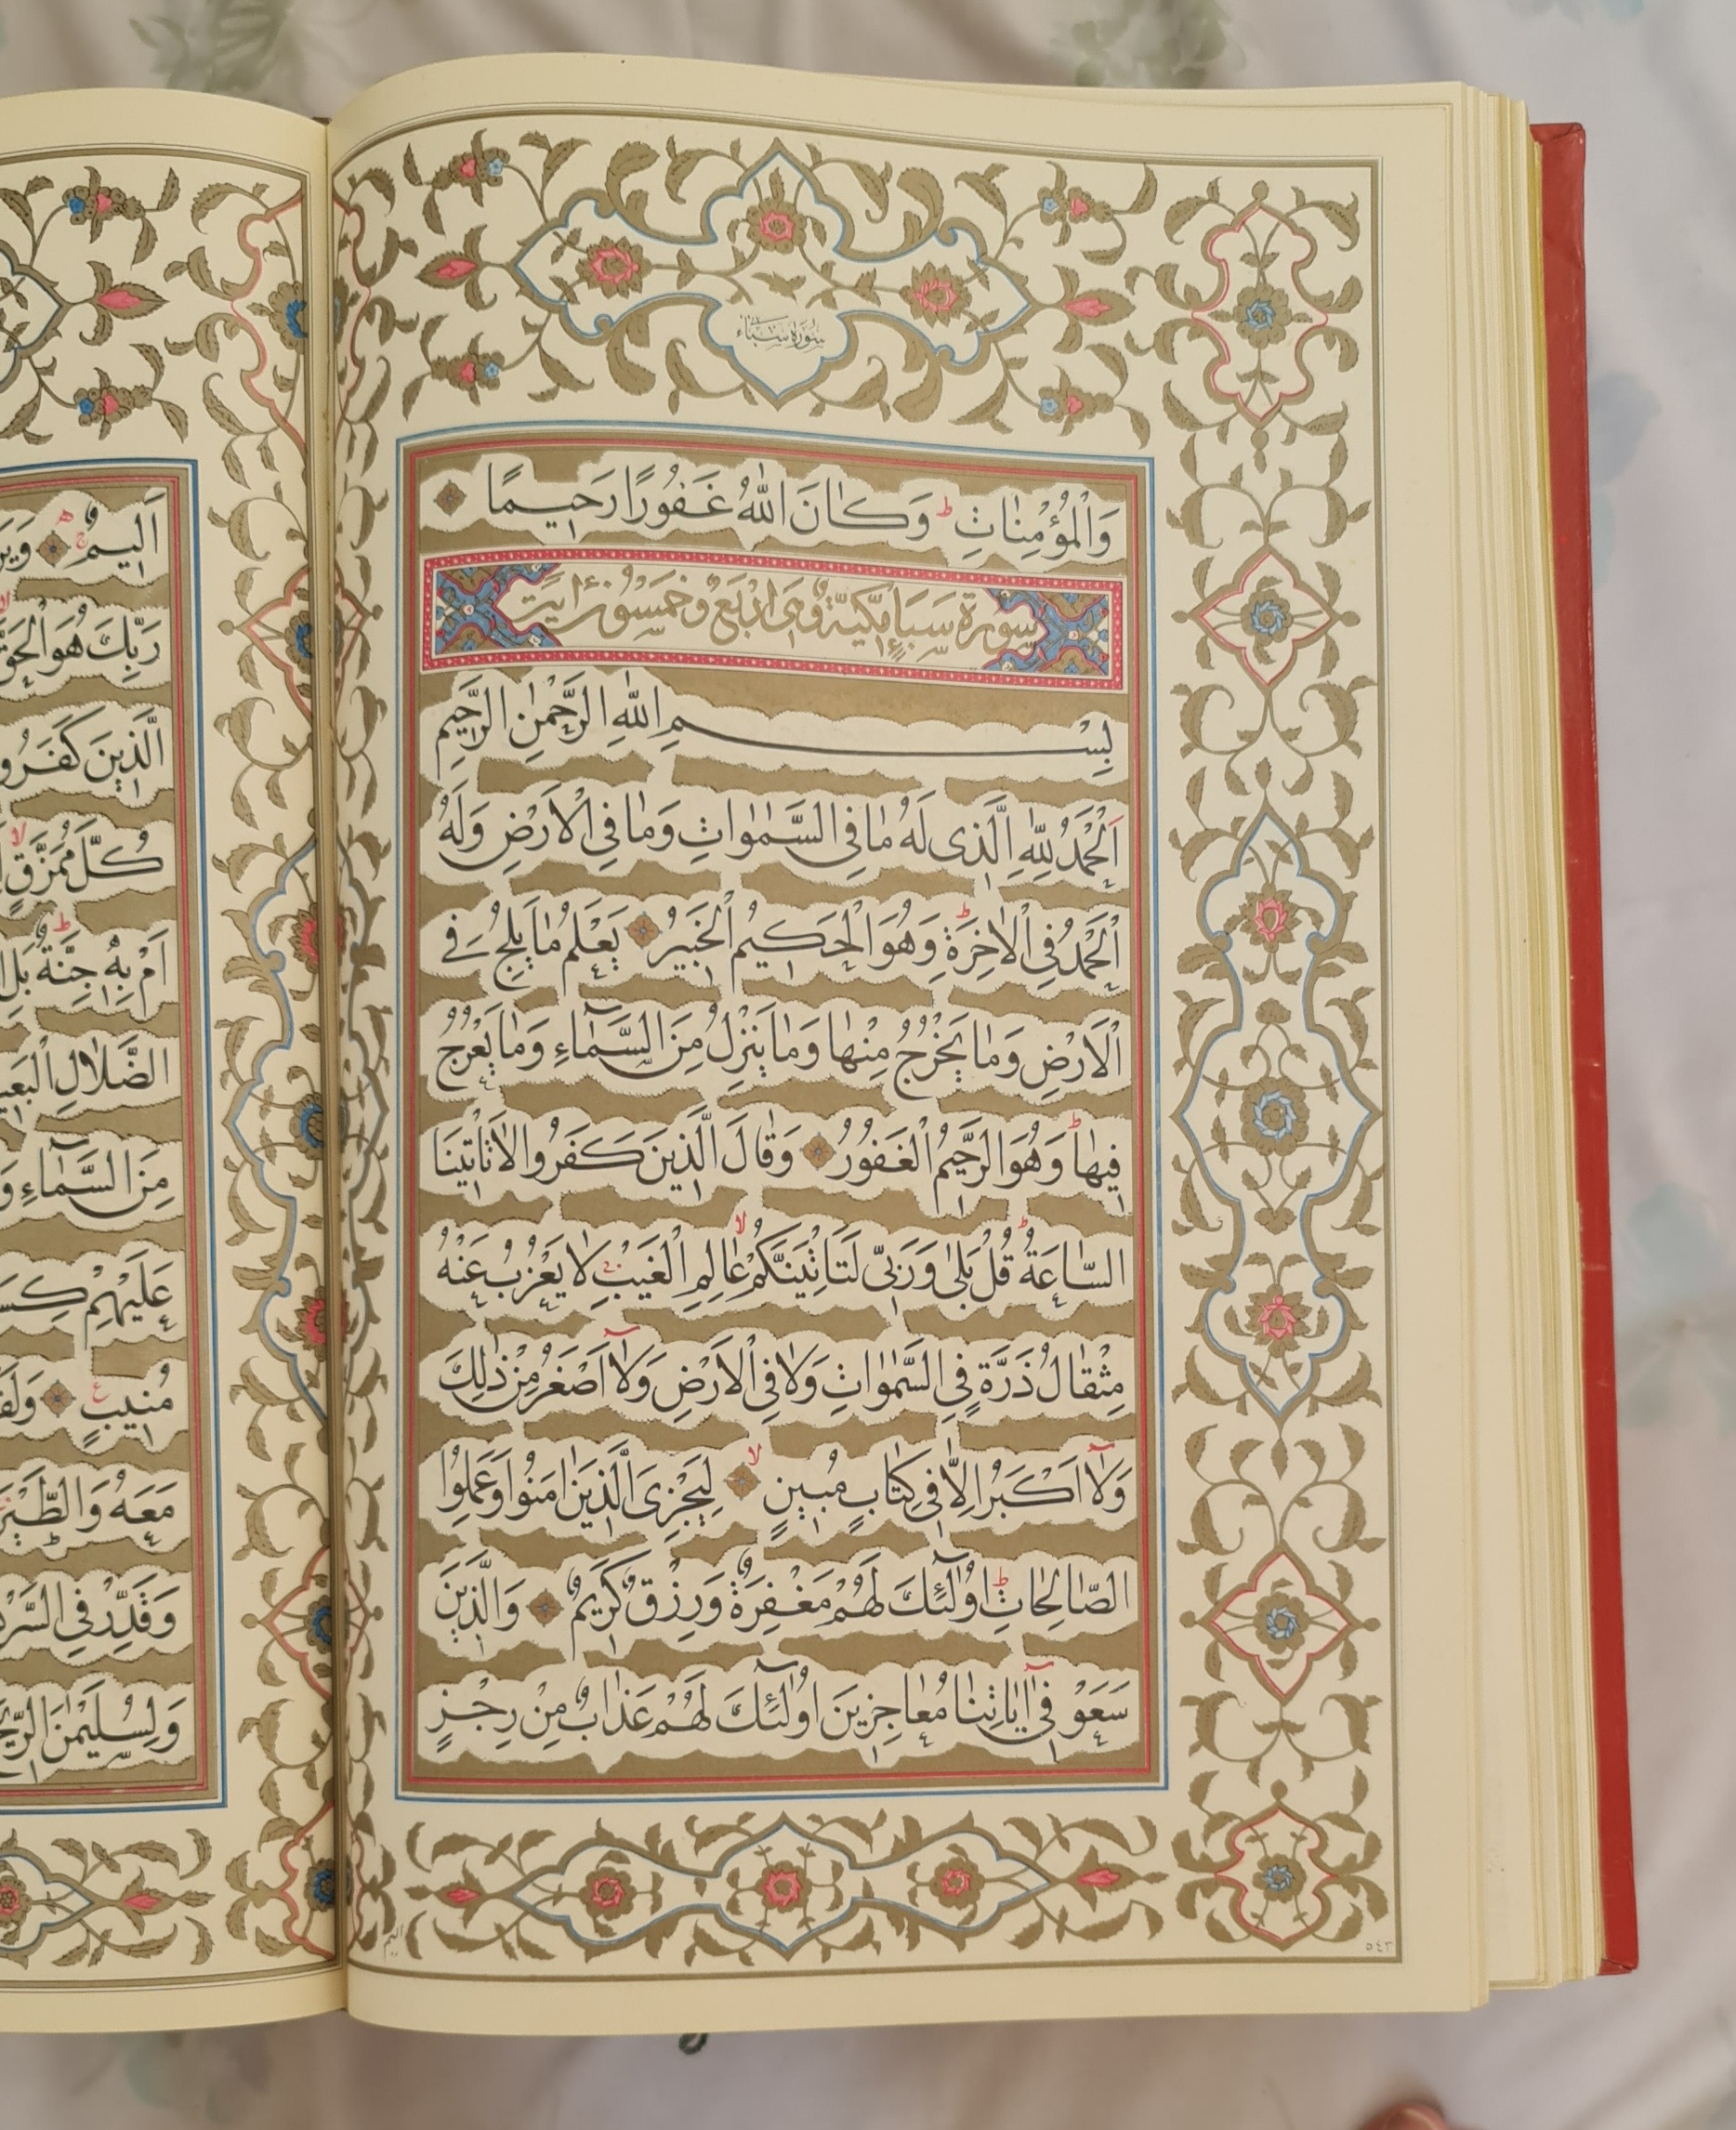 سورة سبأ
وَالْمُؤْمِنَاتِ ۗ وَكَانَ اللّٰهُ غَفُورًا رَحِيمًا
سُورَةُ سَبَإٍ مَكِّيَّةٌ وَهِيَ اَرْبَعٌ وَخَمْسُونَ اٰيَتً
بِسْمِ اللّٰهِ الرَّحْمٰنِ الرَّحِيمِ
اَلْحَمْدُ لِلّٰهِ الَّذِى لَهُ مَا فِى السَّمٰوَاتِ وَمَا فِى الْاَرْضِ وَلَهُ
الْحَمْدُ فِى الْاٰخِرَةِ ط وَهُوَ الْحَكِيمُ الْخَبِيرُ يَعْلَمُ مَا يَلِجُ فِى
الْاَرْضِ وَمَا يَخْرُجُ مِنْهَا وَمَا يَنْزِلُ مِنَ السَّمَآءِ وَمَا يَعْرُجُ
فِيهَا ط وَهُوَ الرَّحِيمُ الْغَفُورُ وَقَالَ الَّذِينَ كَفَرُوا لَا تَاْتِينَا
السَّاعَةُ ط قُلْ بَلٰى وَرَبِّى لَتَاْتِيَنَّكُمْ لا عَالِمِ الْغَيْبِ لَا يَعْزُبُ عَنْهُ
مِثْقَالُ ذَرَّةٍ فِى السَّمٰوَاتِ وَلَا فِى الْاَرْضِ وَلَآ اَصْغَرُ مِنْ ذٰلِكَ
وَلَآ اَكْبَرُ اِلَّا فِى كِتَابٍ مُبِينٍ لا لِيَجْزِىَ الَّذِينَ اٰمَنُوا وَعَمِلُوا
الصَّالِحَاتِ ط اُولٰٓئِكَ لَهُمْ مَغْفِرَةٌ وَرِزْقٌ كَرِيمٌ وَالَّذِينَ
سَعَوْ فِىٓ اٰيَاتِنَا مُعَاجِزِينَ اُولٰٓئِكَ لَهُمْ عَذَابٌ مِنْ رِجْزٍ
اليم
٥٤٣
اَلِيمٌ
رَبِّكَ هُوَ الْحَقَّ
الَّذِينَ كَفَرُوا
كُلَّ مُمَزَّقٍ لا
اَمْ بِهِ جِنَّةٌ ط بَلِ
الضَّلَالِ الْبَعِيدِ
مِنَ السَّمَآءِ
عَلَيْهِمْ
مُنِيبٍ ع وَلَقَدْ
مَعَهُ وَالطَّيْرَ
وَقَدِّرْ فِى السَّرْدِ
وَلِسُلَيْمٰنَ الرِّيحَ